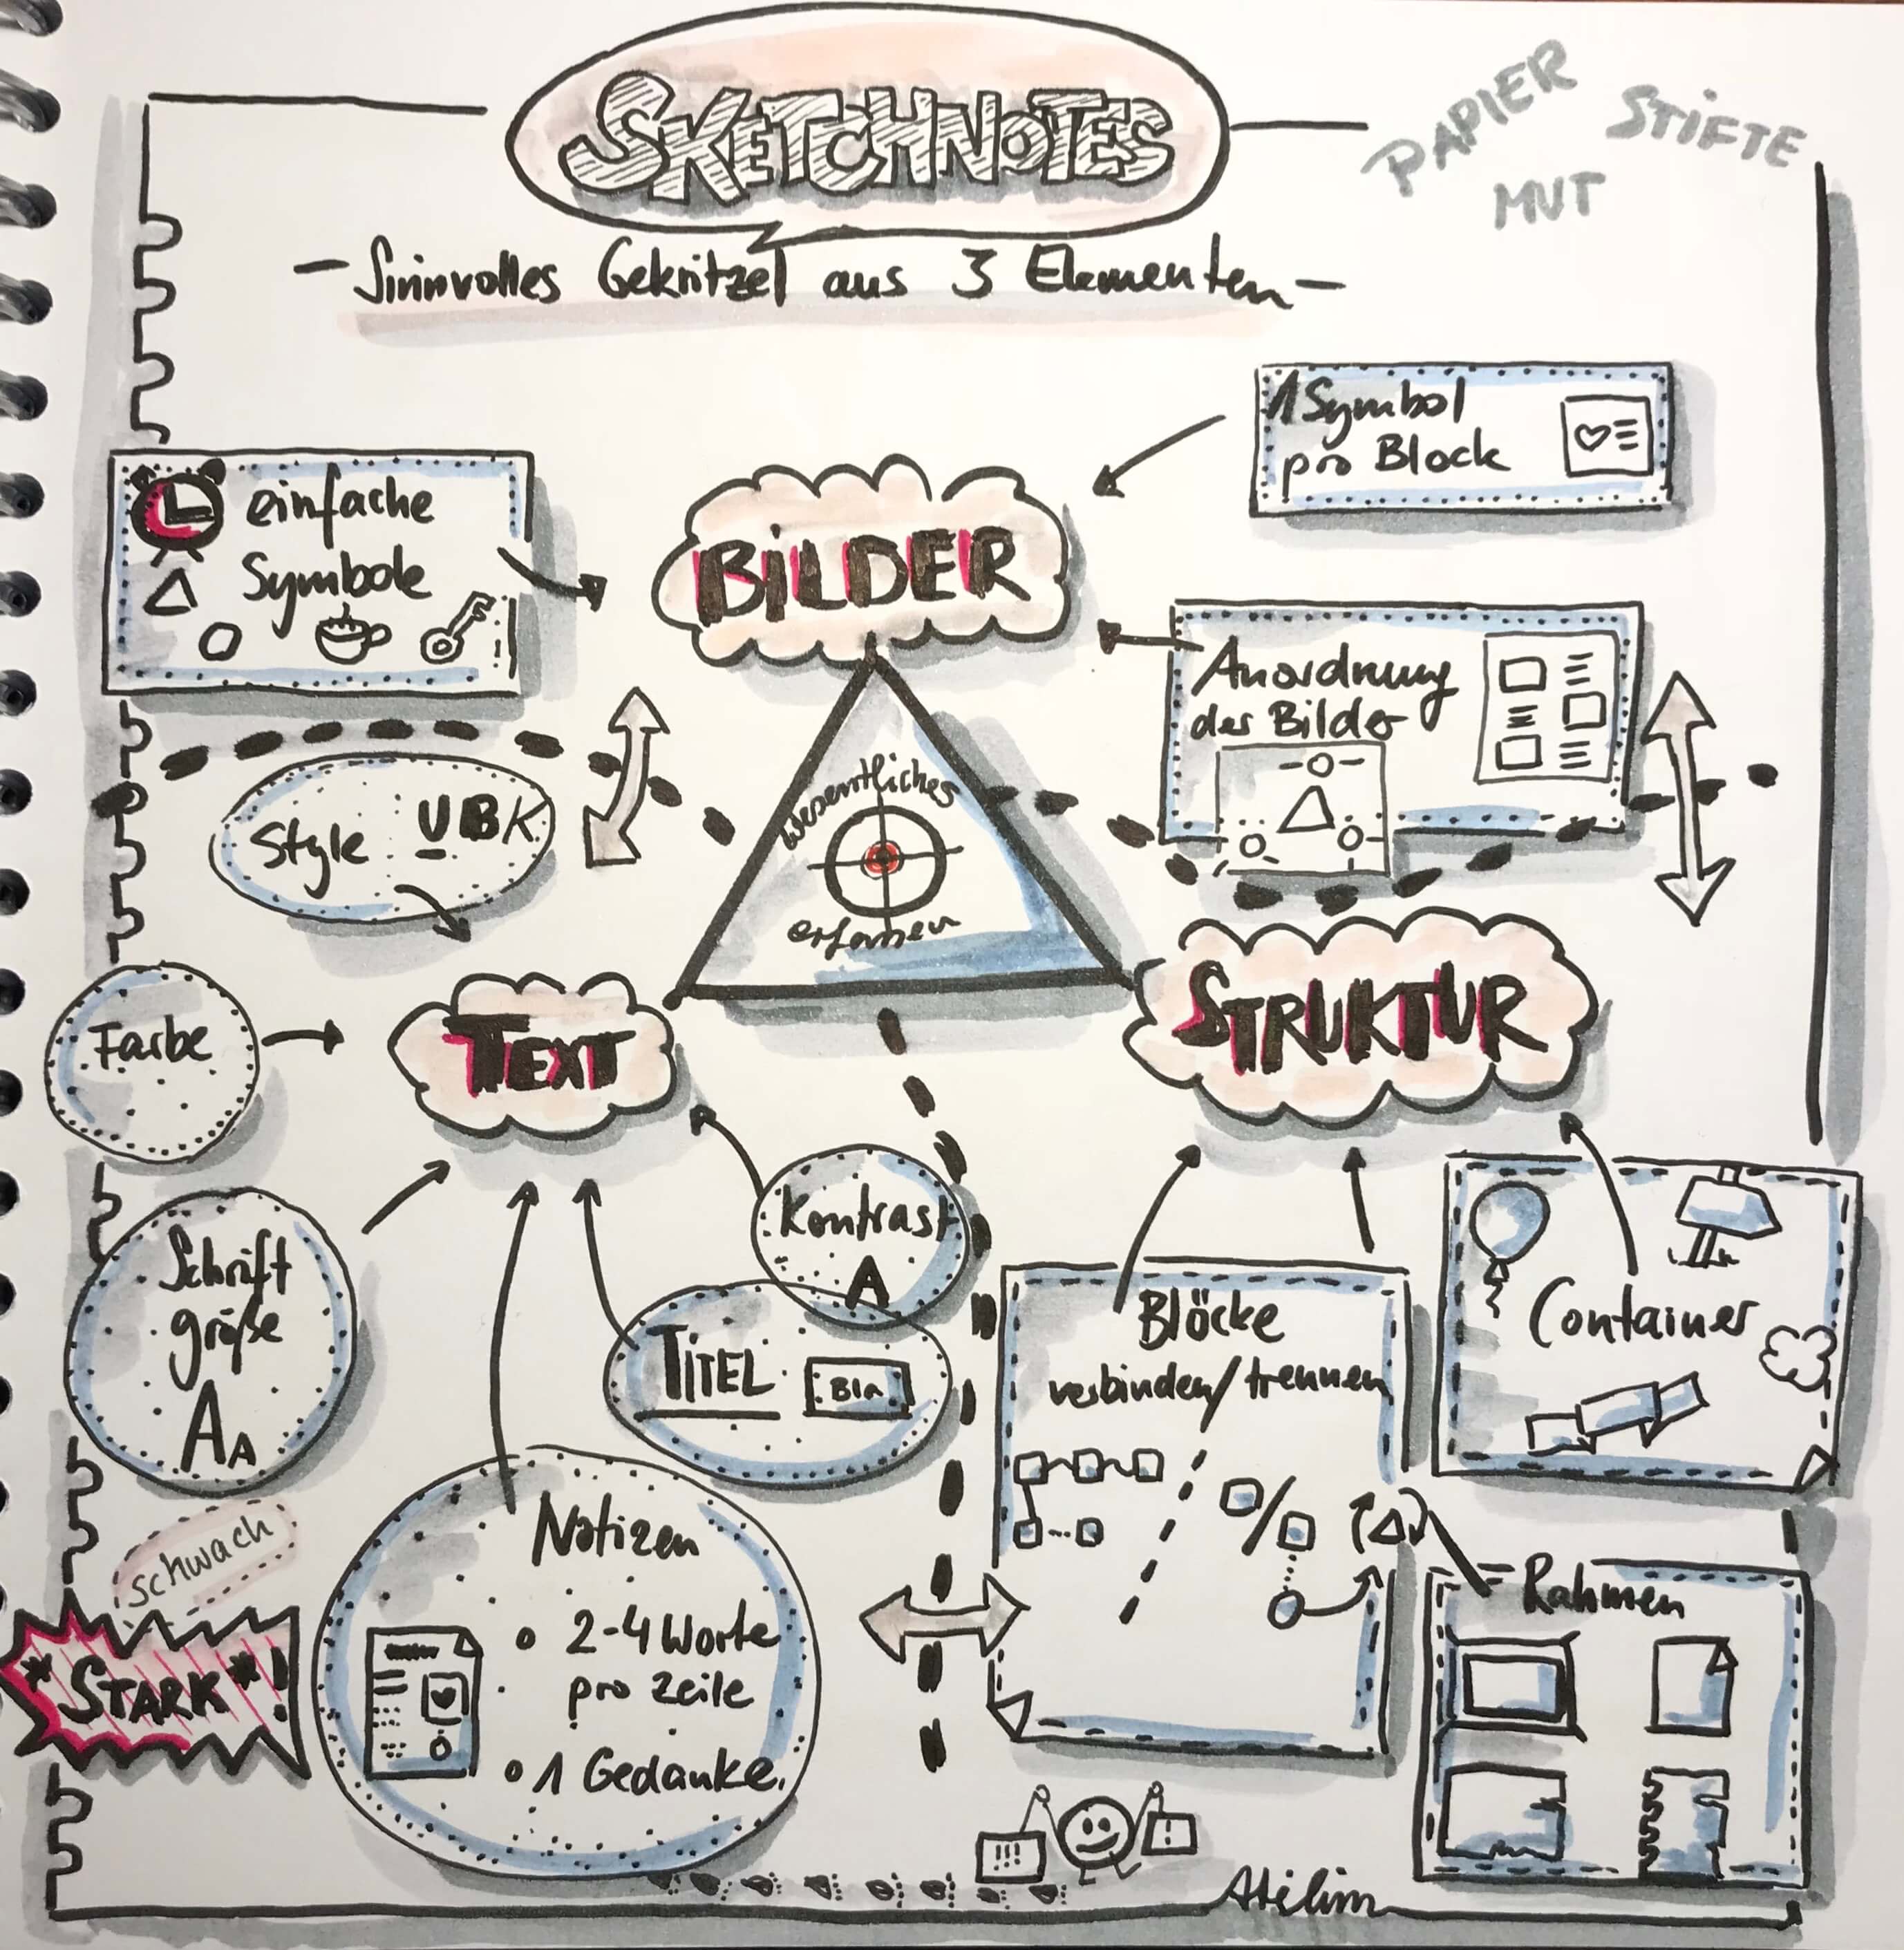 SKETCHNOTES
PAPIER STIFTE
MUT
- Sinnvolles Gekritzel aus 3 Elementen -
1 Symbol
pro Block
einfache
Symbole
BILDER
Anordnung
der Bilder
Wesentliches
erfassen
Style UBK
Farbe
TEXT
STRUKTUR
Schrift
größe
AA
Kontrast
A
TITEL Bla
Blöcke
verbinden/trennen
Container
Notizen
2-4 Worte
pro Zeile
1 Gedanke
schwach
*STARK*!
Rahmen
!!! !
Atilim